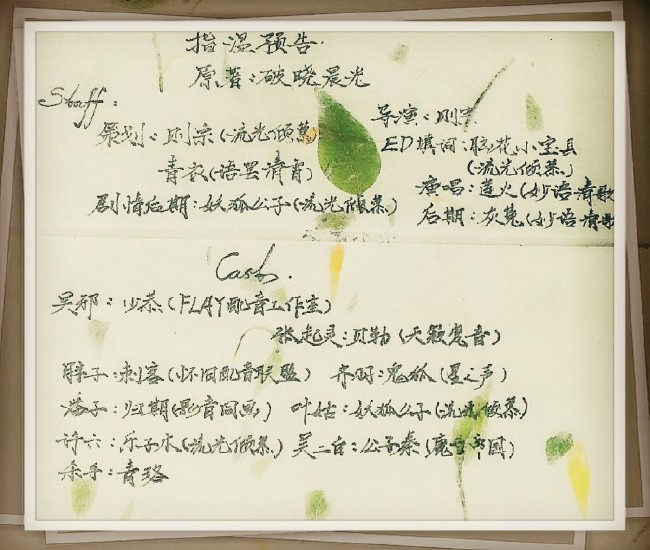 指温预告
原著：破晓晨光
Staff：
导演：则宗
策划：则宗(流光倾慕)
ED填词：胭花小宝县
(流光倾慕)
青衣(语罢清宵)
演唱：莲火(妙语清歌
剧情后期：妖狐公子(流光倾慕)
后期：灰兔(妙语清歌
Cast.
吴邪：少恭(FLAY配音工作室)
张起灵：贝勒(天籁惑音)
胖子：刺客(怀旧配音联盟) 齐羽：鬼狐(星之声)
潘子：归期(影音同画) 叶姑：妖狐公子(流光倾慕)
许六：乐子水(流光倾慕) 吴二白：公子秦(魔王帝国)
杀手：青珞